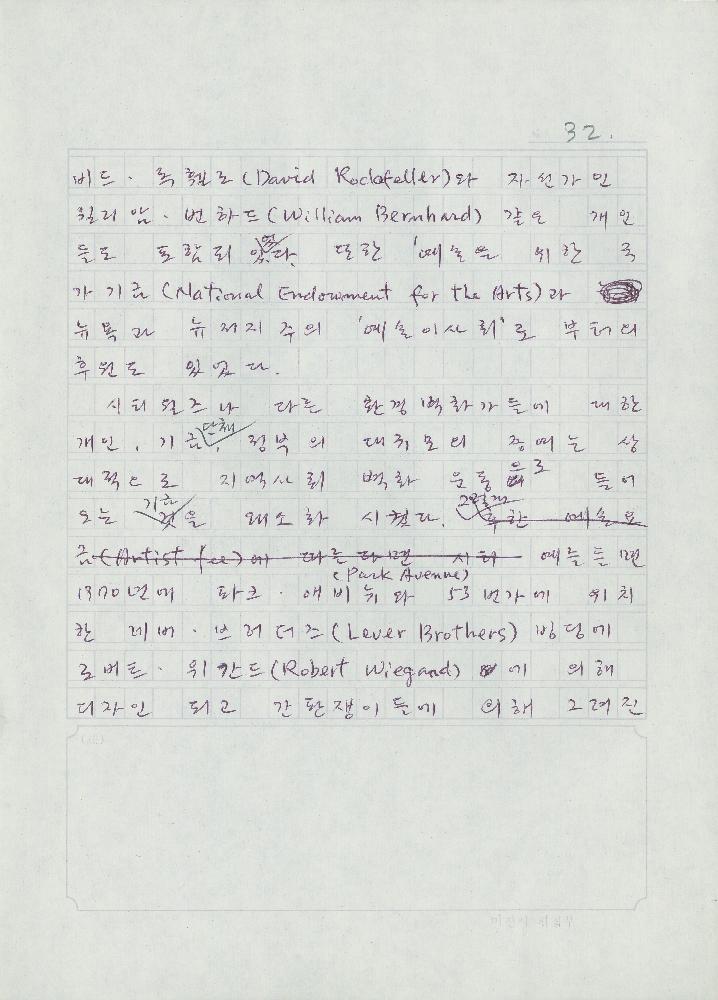 32.
비드 · 록휄로 (David Rockefeller)와 자선가인
윌리암 · 번하드 (William Bernhard) 같은 개인
들도 포함되 었다. 또한 '예술을 위한 국
가 기금 (National Endowment for the Arts)과
뉴욕과 뉴저지 주의 '예술이사회'로 부터의
후원도 있었다.
시티 월즈나 다른 환경 벽화가들에 대한
단체
개인, 기금, 정부의 대규모의 증여는 상
대적으로 지역사회 벽화 운동 으로 들어
기금
오는 것을 왜소화 시켰다. 그렇게
후한 예술요
금 (Artist fee)에 따른다면 시티 예를들면
(Park Avenue)
1970년에 파크 · 애비뉴와 53번가에 위치
한 레버 · 브러더즈 (Lever Brothers) 빙딩에
로버트 · 위간드 (Robert Wiegand) 에 의해
디자인 되고 간판쟁이들에 의해 그려진